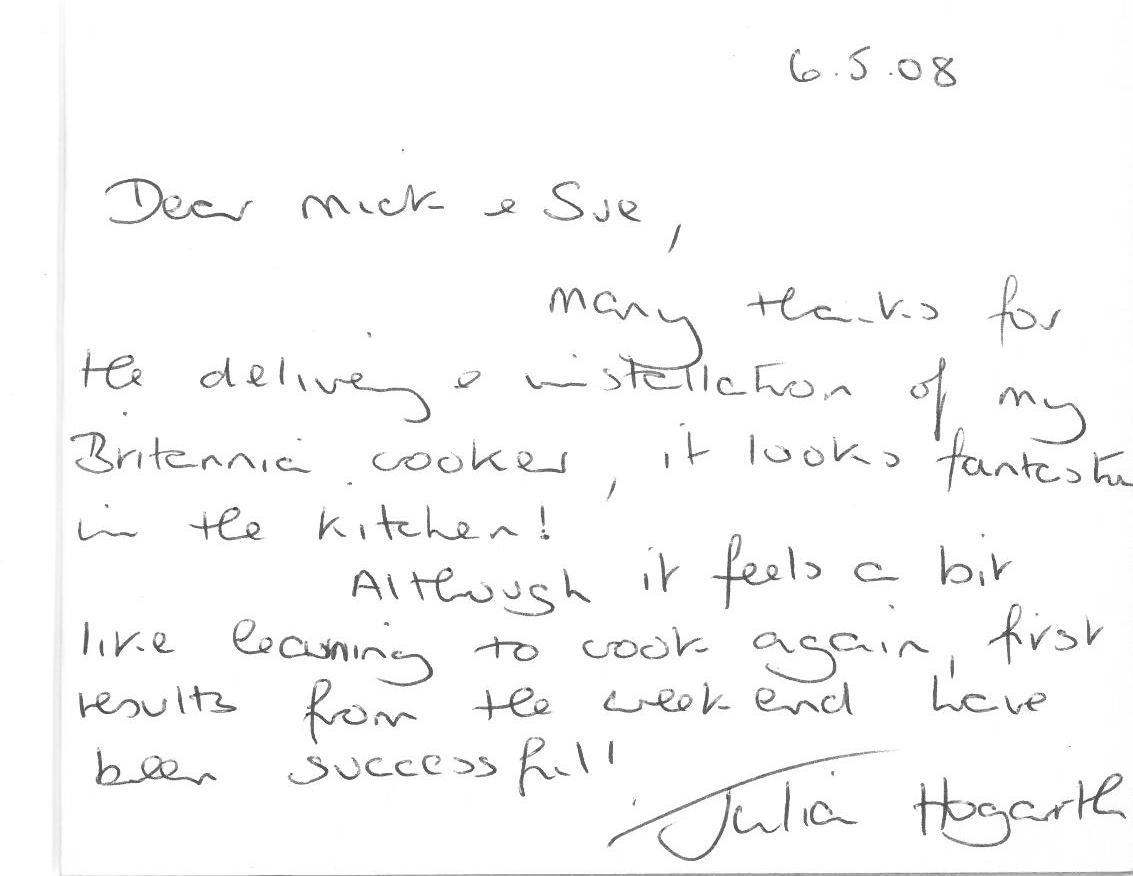 6.5.08
Dear Mick & Sue,
Many thanks for
the delivery & installation of my
Britannia cooker, it looks fantastic
in the kitchen!
Although it feels a bit
like learning to cook again, first
results from the weekend have
been successful!
Julia Hogarth